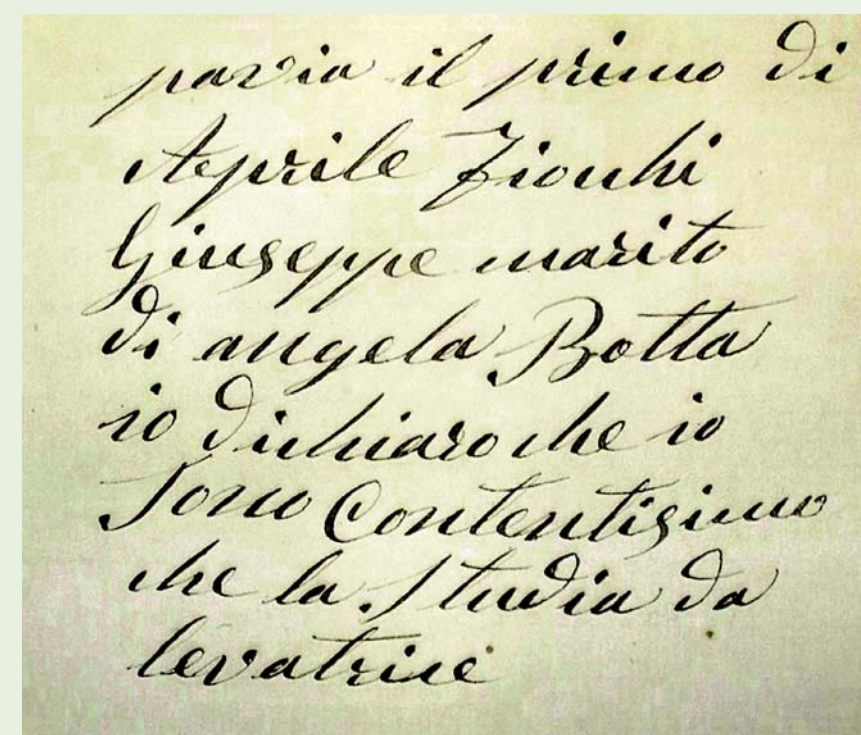 pavia il primo di
Aprile Fionhi
Giuseppe marito
di angela Botta
io dichiaro che io
Sono Contentisimo
che la Studia da
levatrice